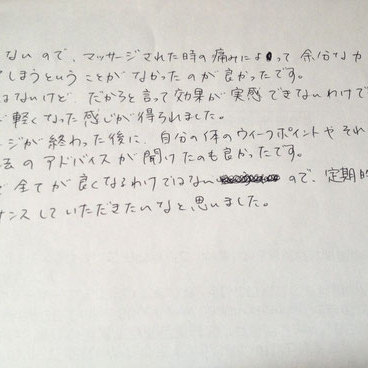 ないので、マッサージされた時の痛みによって余分なカ
しまうということがなかったのが良かったです。
はないけど、だからと言って効果が実感できないわけで
軽くなった感じが得られました。
ージが終わった後に、自分の体のウィークポイントやそれ
法のアドバイスが聞けたのも良かったです。
全てが良くなるわけではないので、定期的
ナンスしていただきたいなと思いました。